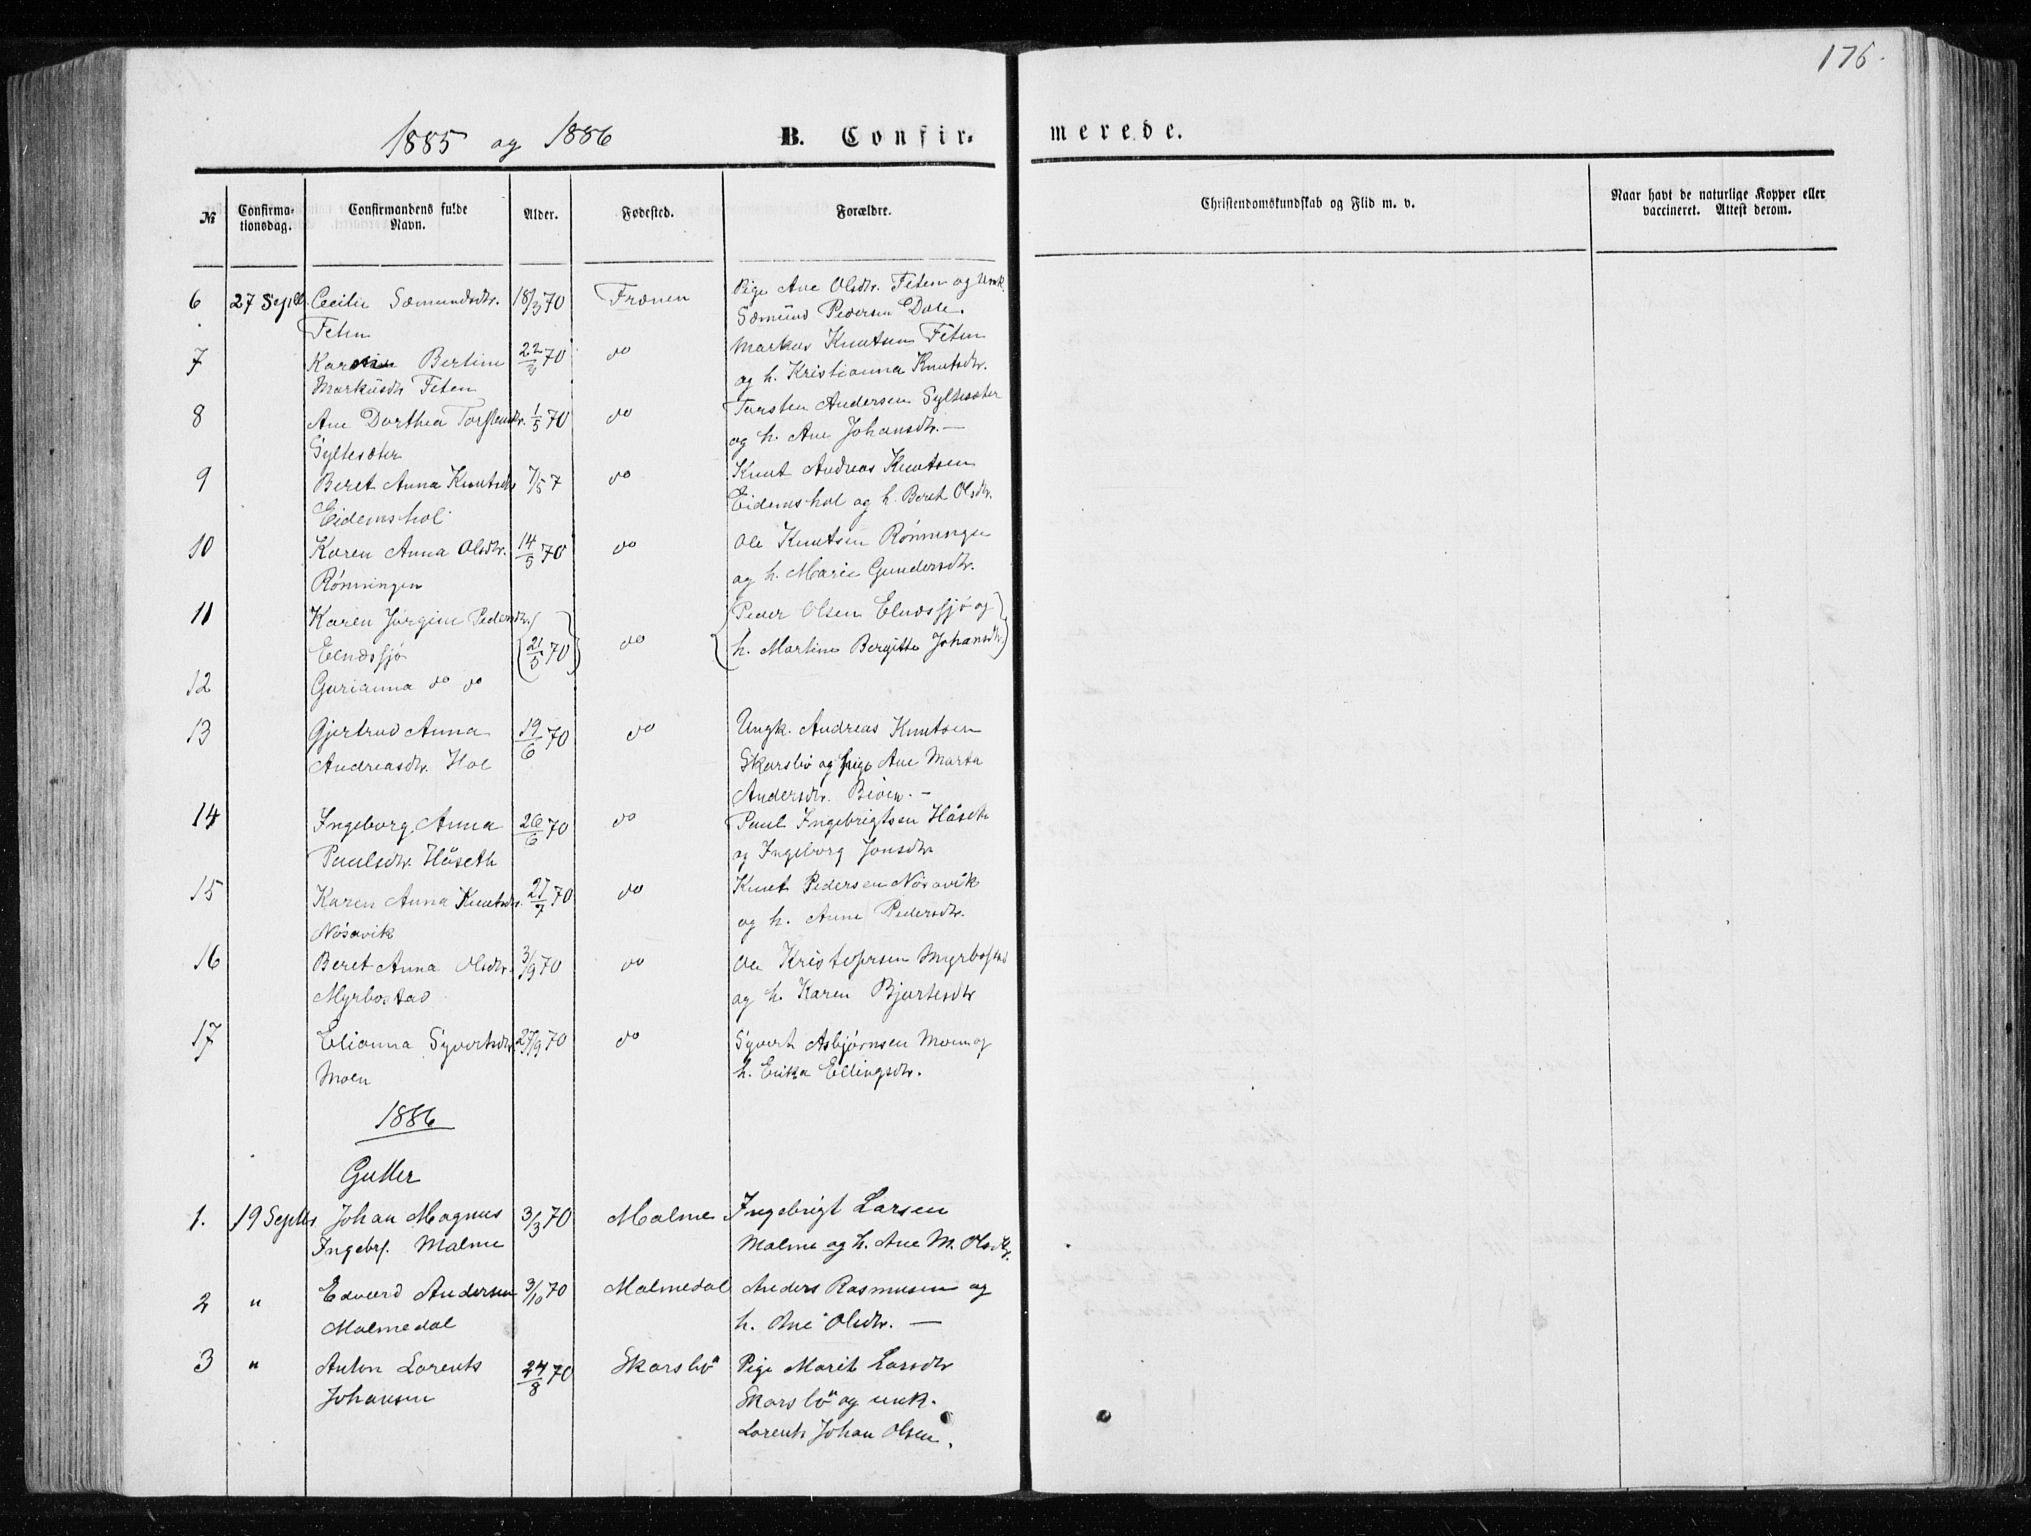 176.
1885 og 1886 B. Confir- merede.
№ Confirma-tionsdag. Confirmandens fulde Navn. Alder. Fødested. Forældre. Christendomskundskab og Flid m. v. Naar havt de naturlige Kopper eller vaccineret. Attest derom.
6 27 Septb. Cecilie Sæmundsdtr. 18/3 70 Frænen Pige Ane Olsdtr. Feten og Unk.
Feten Sæmund Pedersen Dale.
7 Bertine 22/ 70 do Markus Knutsen Feten
Markusdtr Feten og h. Kristianna Knutsdtr.
8 Ane Dorthea Torstensdtr. 1/5 70 do Torsten Andersen Syltesæter
Syltesæter og h. Ane Johansdtr. —
9 Beret Anna Knutsdtr 7/5 7 do Knut Andreas Knutsen
Eidemshol Eidemshol og h. Beret Olsdtr.
10 Karen Anna Olsdtr. 14/5 70 do Ole Knutsen Rønningen
Rønningen og h. Marie Gundersdtr.
11 Karen Jørgine Pedersdtr. Peder Olsen Elnæssjø og
Elnæssjø 21/5 70 do h. Martine Bergitte Johansdtr.
12 Gurianna do do
13 Gjertrud Anna 19/6 70 do Ungk. Andreas Knutsen
Andreasdtr. Hol Skarsbø og pige Ane Marta
Andersdtr. —
14 Ingeborg Anna 26/6 70 do Paul Ingebrigtsen Håseth
Paulsdtr. Håseth og Ingeborg Jonsdtr
15 Karen Anna Knutsdtr. 27/7 70 do Knut Pedersen Nøsavik
Nøsavik og h. Anne Pedersdtr.
16 Beret Anna Olsdtr. 3/9 70 do Ole Kristofersen Myrbostad
Myrbostad og h. Karen Bjertesdtr
17 Elianna Syvertsdtr. 27/9 70 do Syvert Asbjørnsen Moen og
Moen h. Erika Ellingsdtr.
1886
Gutter
1. 19 Septbr Johan Magnus 3/3 70 Malme Ingebrigt Larsen
Ingebr. Malme Malme og h. Ane M. Olsdtr.
2 " Edvard Andersen 3/10 70 Malmedal Anders Rasmusen og
Malmedal h. Ane Olsdtr. —
3 " Anton Lorents 24/8 70 Skarsbø Pige Marit Larsdtr
Johansen Skarsbø og unk.
Lorents Johan Olsen.